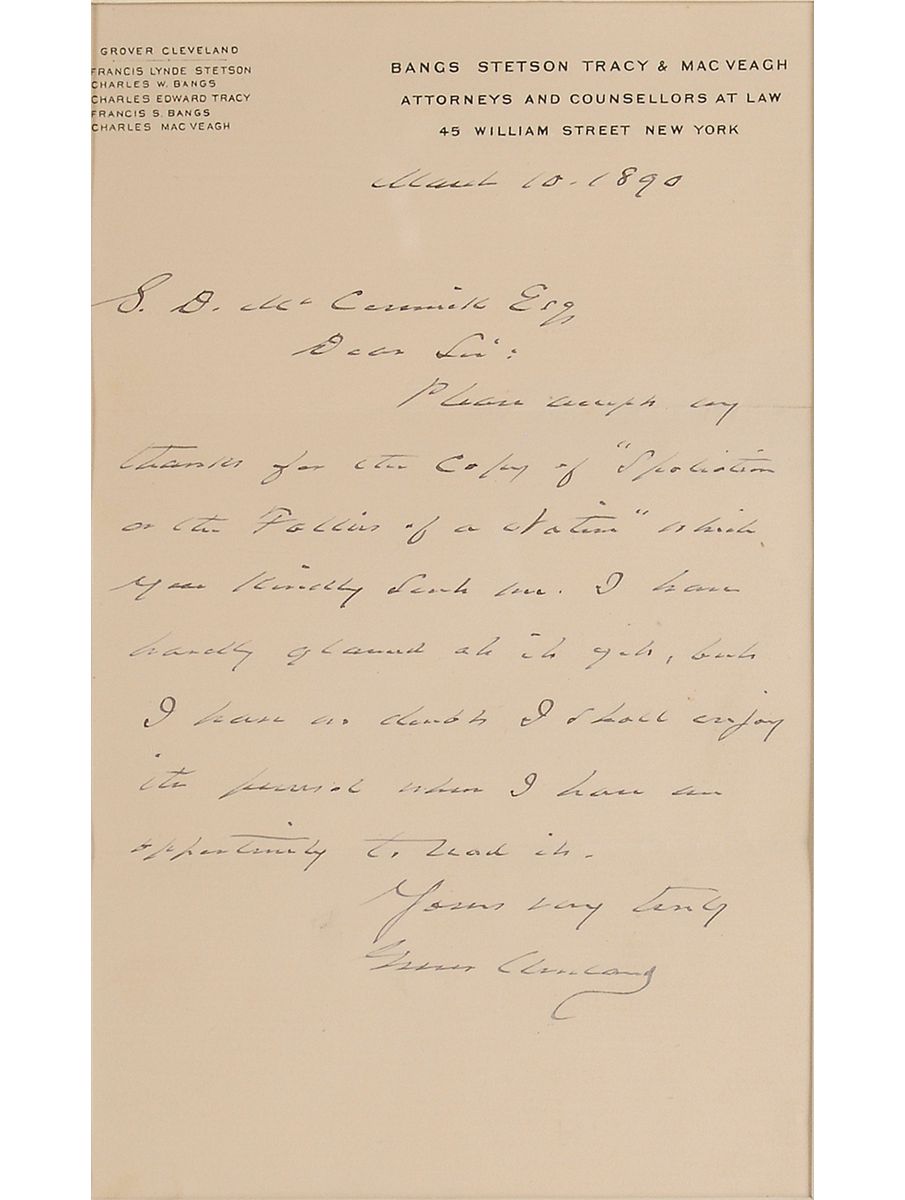 GROVER CLEVELAND
FRANCIS LYNDE STETSON
CHARLES W. BANGS
CHARLES EDWARD TRACY
FRANCIS S. BANGS
CHARLES MAC VEAGH
BANGS STETSON TRACY & MAC VEAGH
ATTORNEYS AND COUNSELLORS AT LAW
45 WILLIAM STREET NEW YORK
March 10. 1890
S. D. Mc Cormick Esq
Dear Sir:
Please accept my
thanks for the Copy of "Spoliation
or the Follies of a Nation" which
you kindly sent me. I have
hardly glanced at it yet, but
I have no doubt I shall enjoy
its perusal when I have an
opportunity to read it.
Yours very truly
Grover Cleveland